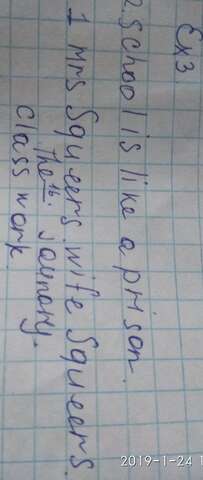 Ex3
2 School is like a prison.
1 Mrs Squeers. wife Squeers.
The January.
Class work.
2019-1-24